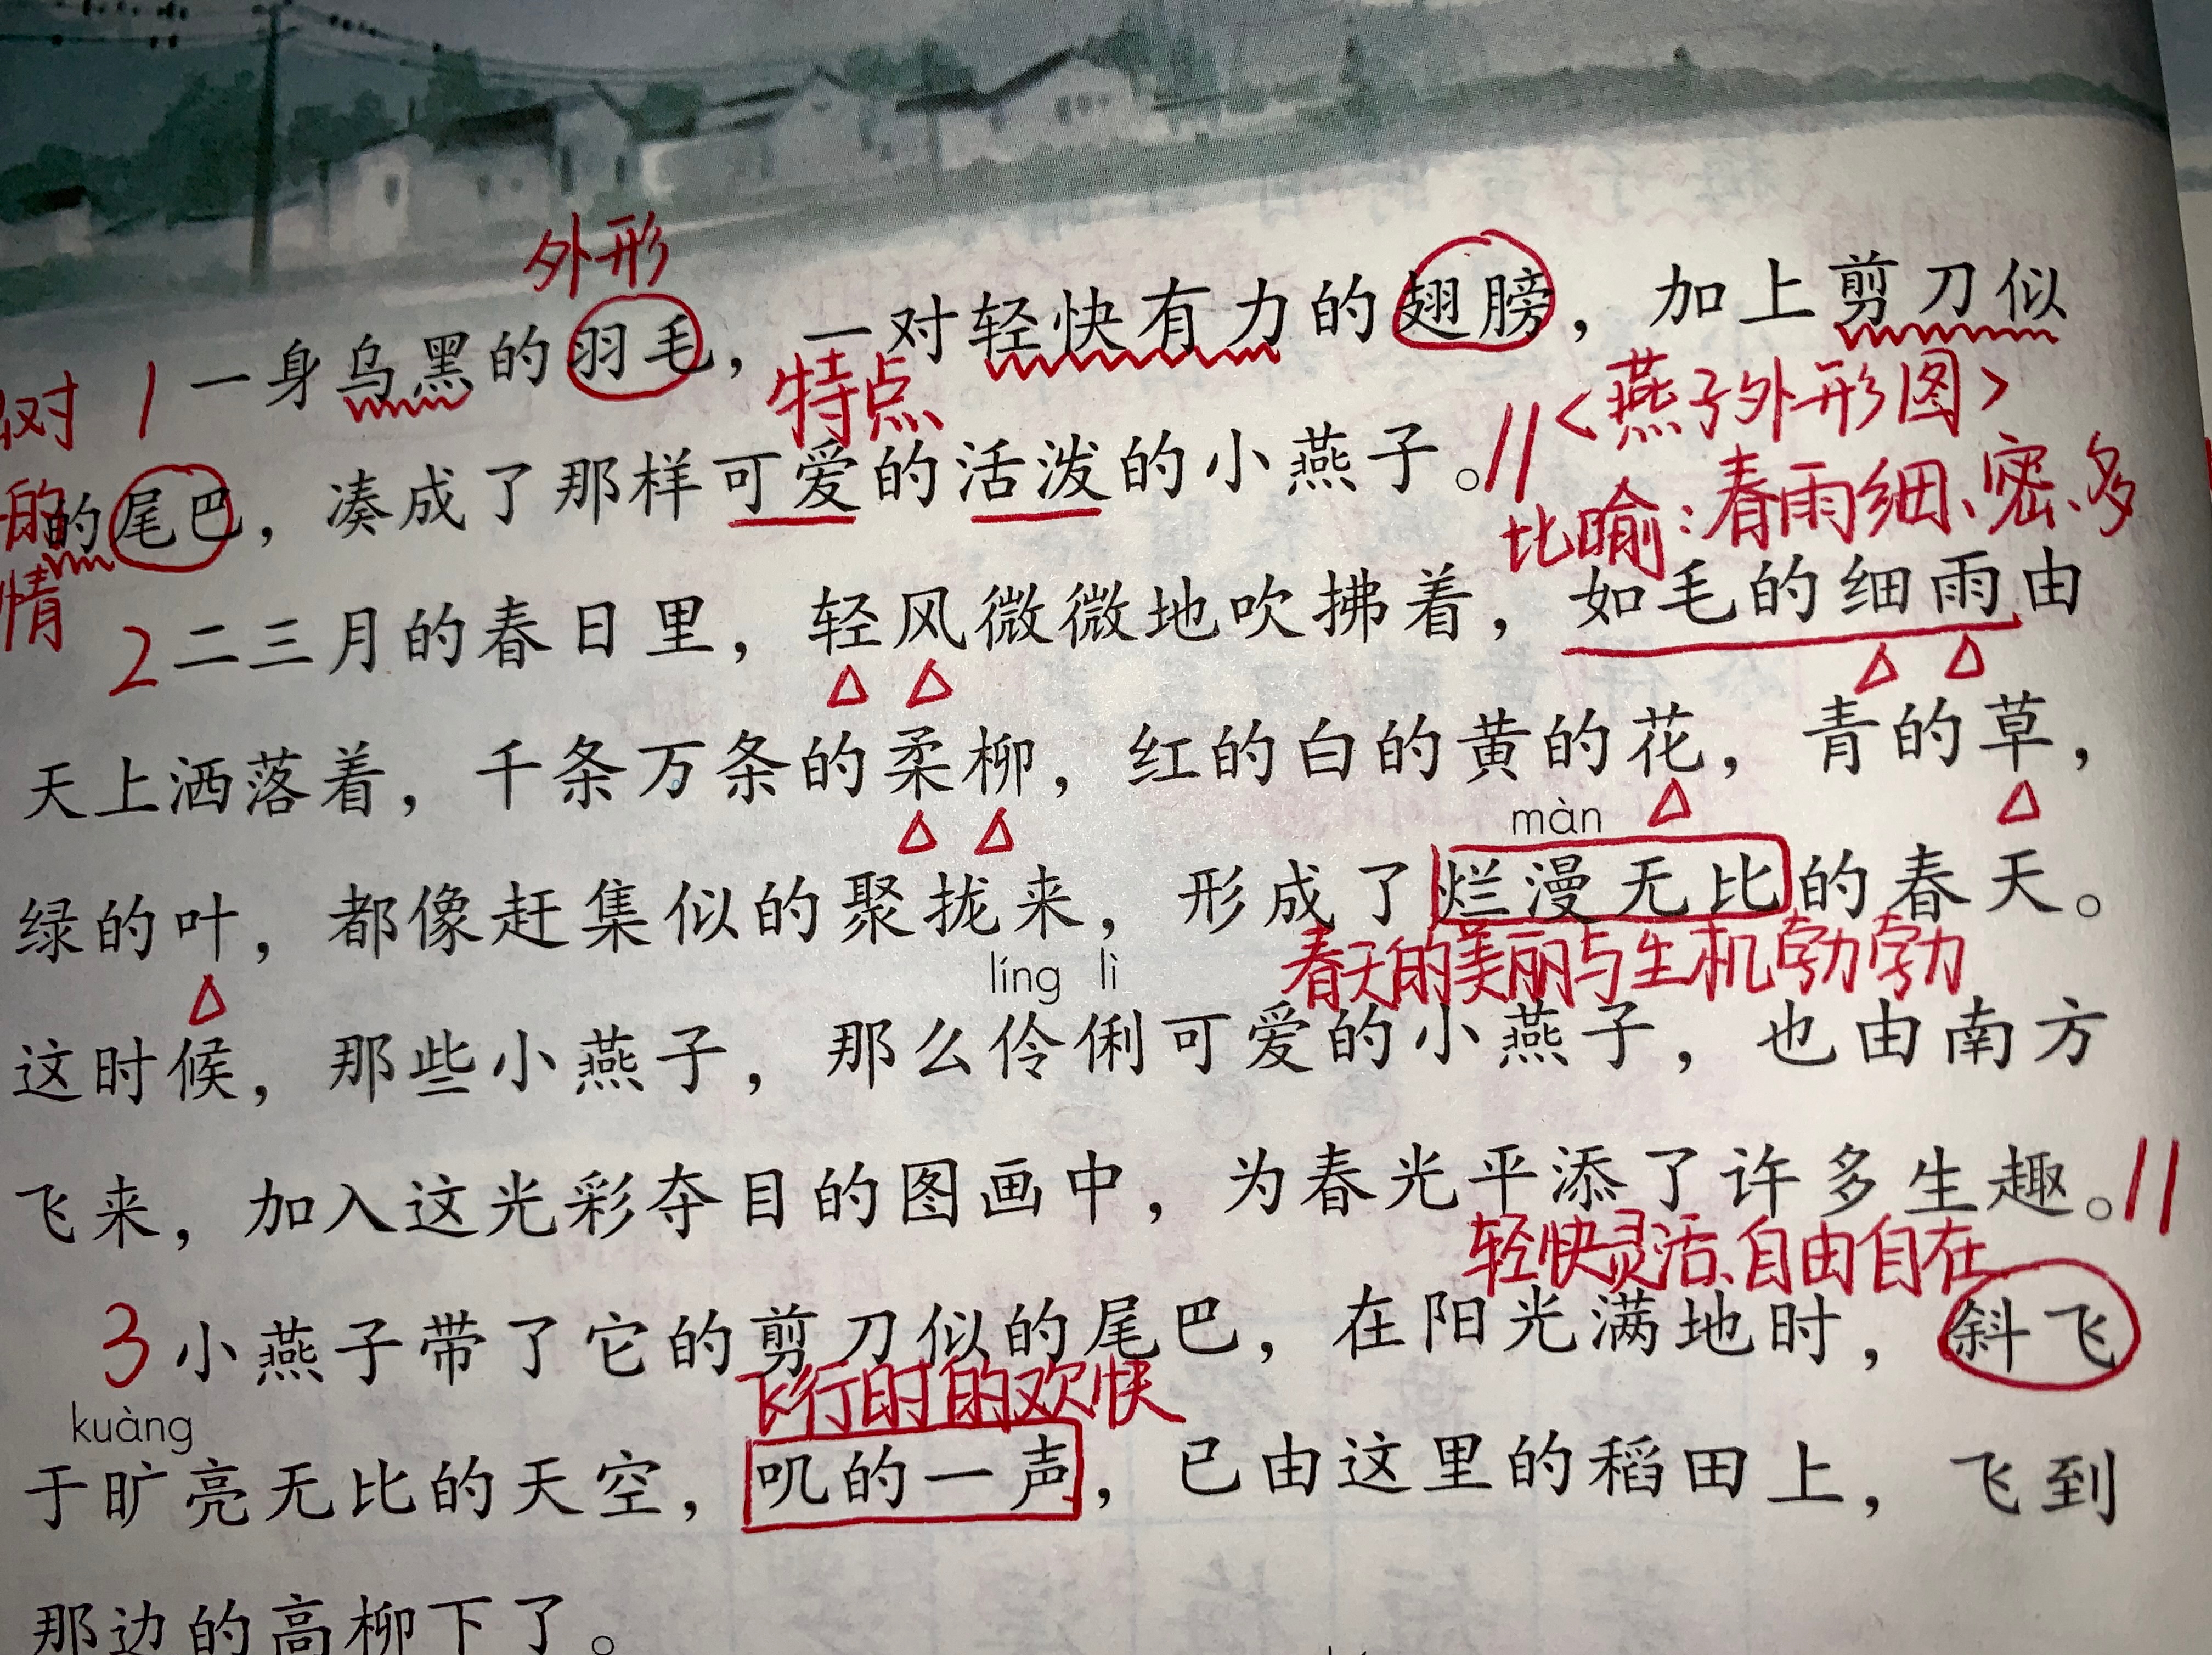 外形
1 一身乌黑的羽毛，一对轻快有力的翅膀，加上剪刀似
对
特点
<燕子外形图>
的尾巴，凑成了那样可爱的活泼的小燕子。//
的
比喻：春雨细、密、多
情
2 二三月的春日里，轻风微微地吹拂着，如毛的细雨由
天上洒落着，千条万条的柔柳，红的白的黄的花，青的草，
màn
绿的叶，都像赶集似的聚拢来，形成了烂漫无比的春天。
春天的美丽与生机勃勃
líng lì
这时候，那些小燕子，那么伶俐可爱的小燕子，也由南方
飞来，加入这光彩夺目的图画中，为春光平添了许多生趣。//
轻快灵活、自由自在
3 小燕子带了它的剪刀似的尾巴，在阳光满地时，斜飞
飞行时的欢快
kuàng
于旷亮无比的天空，叽的一声，已由这里的稻田上，飞到
那边的高柳下了。